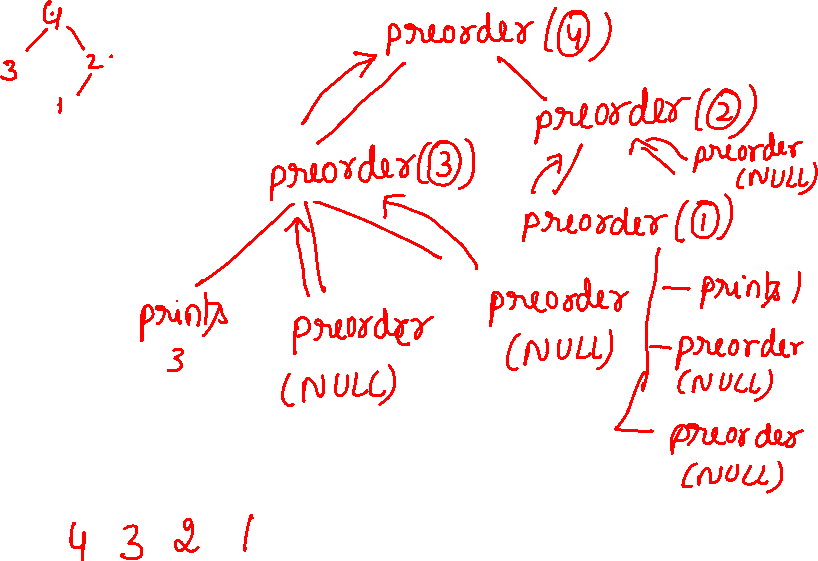 4
3 2
1
preorder(4)
preorder(2)
preorder(3)
preorder
(NULL)
preorder(1)
prints
3
preorder
(NULL)
preorder
(NULL)
prints 1
preorder
(NULL)
preorder
(NULL)
4 3 2 1